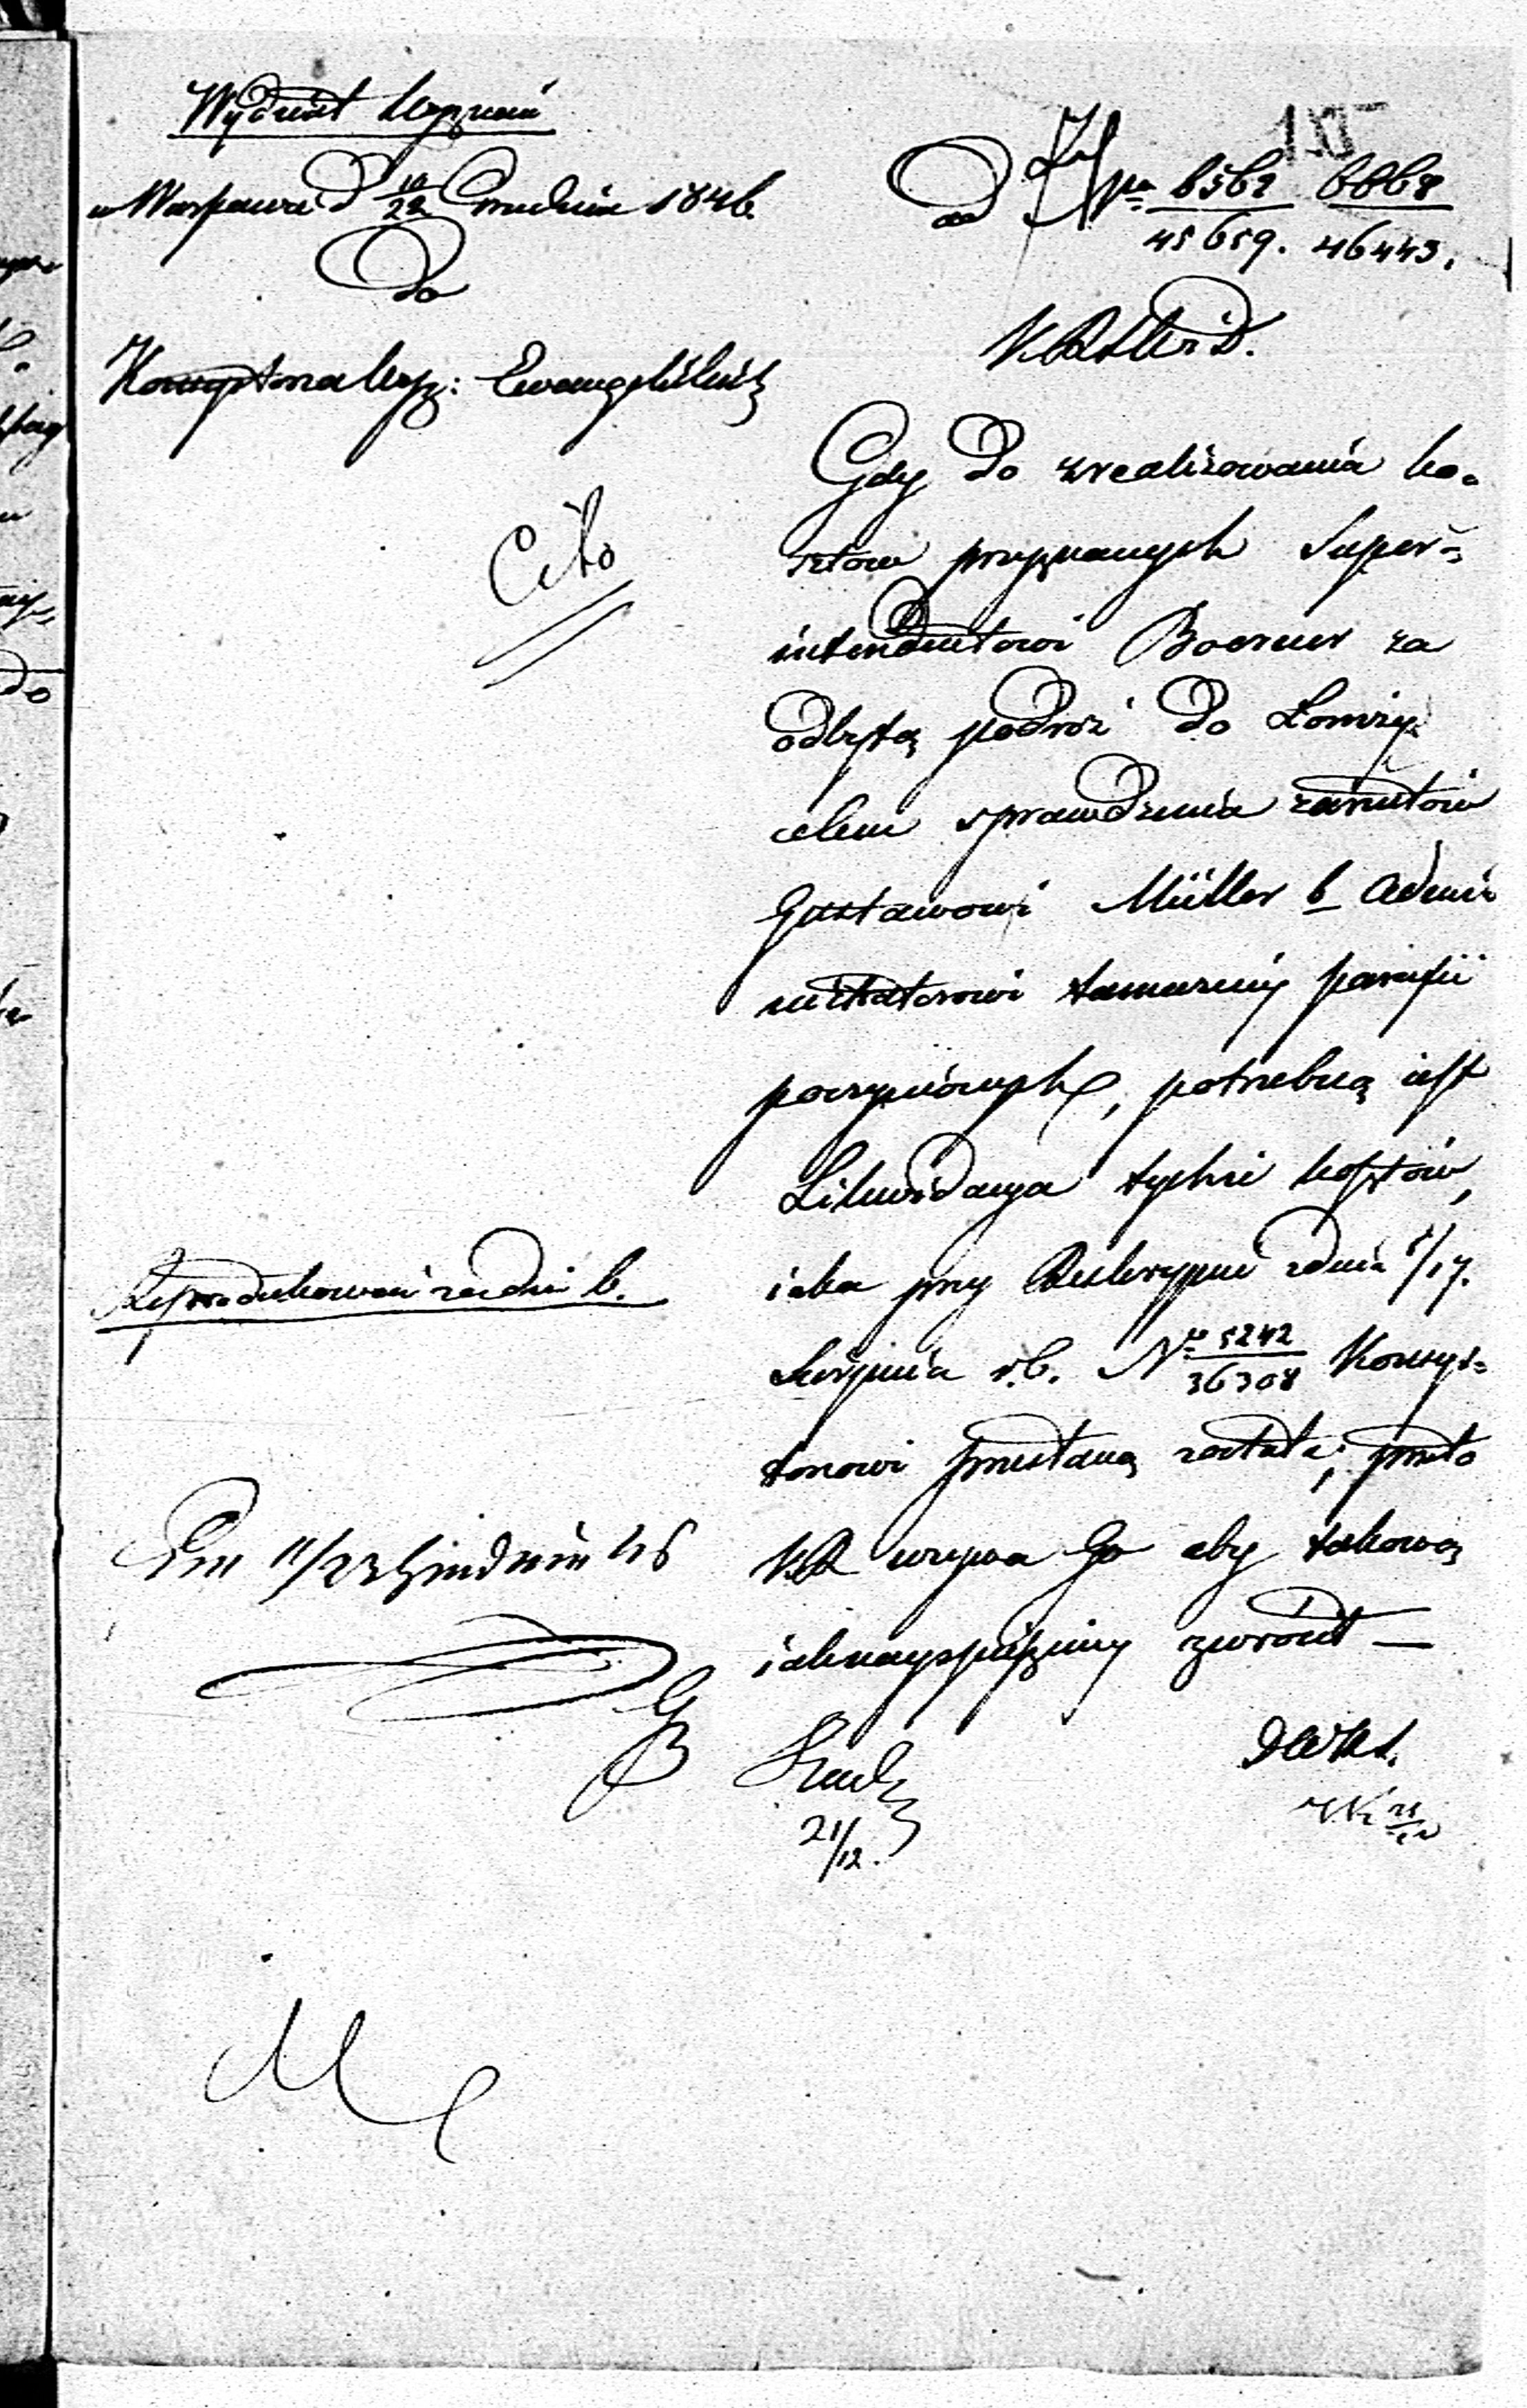 Wydział Wyznań
w Warszawie d 10/22 Grudnia 1846.
Do
Konsystorza Wyz: Ewangelickich
Cito
ad N 6562 6668
45659. 46443.
K.R.S.W.i D.
Gdy do zrealizowania ko-
sztow przyznanych Super-
intendentowi Boerner za
odbytą podróż do Łomży
celem sprawdzenia zarzutów
Gustawowi Müller b Admi-
nistratorowi tameczney parafii
poczynionych, potrzebną iest
Likwidacya tychże kosztów,
iaka przy Reskrypcie z dnia 5/17.
Sierpnia r.b. No 5242/36308 Konsys-
torzowi przesłaną została; przeto
KR wzywa Go aby takową
iaknayspieszniey zwrócił —
Reprodukować za dni 6.
11/23 Grudnia 46
21/12.